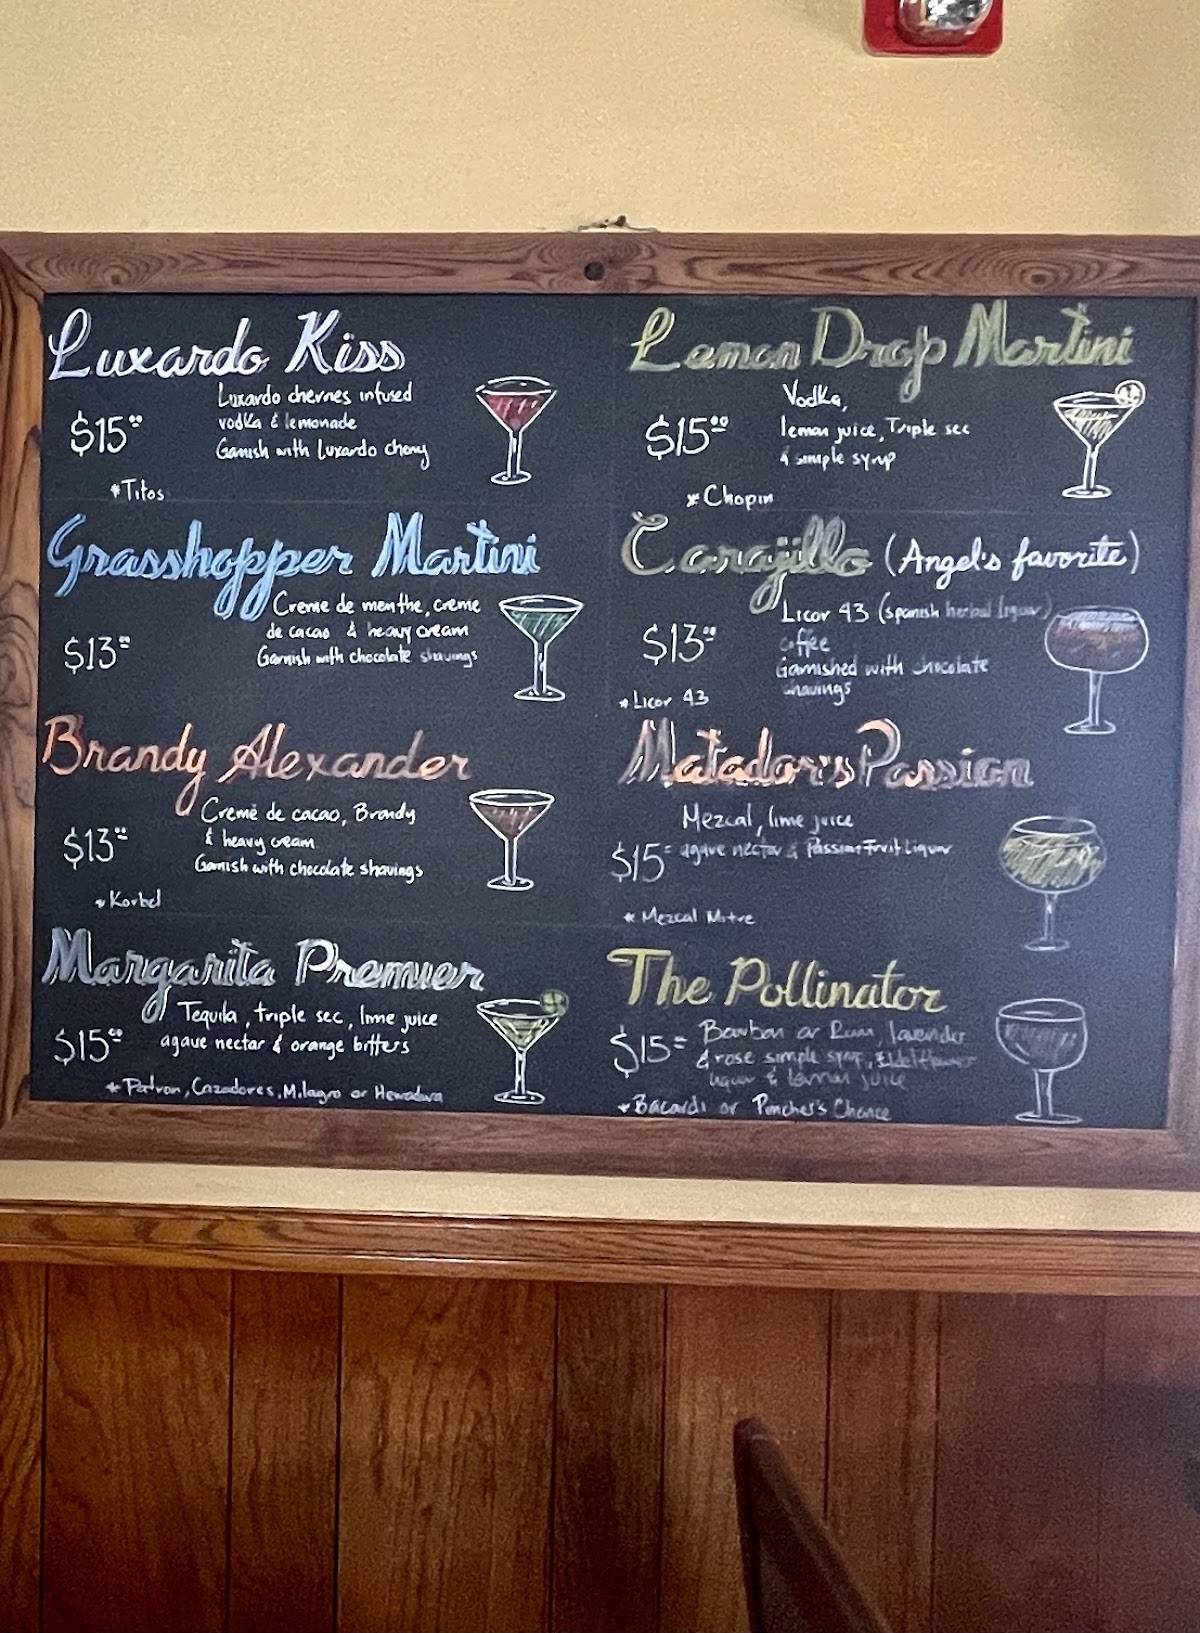 Luxardo Kiss
$15.00
Luxardo cherries infused
vodka & lemonade
Garnish with Luxardo cherry
*Titos
Grasshopper Martini
$13.00
Creme de menthe, creme
de cacao & heavy cream
Garnish with chocolate shavings
Brandy Alexander
$13.00
Creme de cacao, Brandy
& heavy cream
Garnish with chocolate shavings
*Korbel
Margarita Premier
$15.00
Tequila, triple sec, lime juice
agave nectar & orange bitters
*Patron, Cazadores, Milagro or Herradura
Lemon Drop Martini
$15.00
Vodka,
lemon juice, Triple sec
& simple syrup
*Chopin
Carajillo (Angel's favorite)
$13.00
Licor 43 (spanish herbal liquor)
coffee
Garnished with chocolate
shavings
*Licor 43
Matador's Passion
$15
Mezcal, lime juice
agave nectar & Passion Fruit Liquor
*Mezcal Mitre
The Pollinator
$15
Bourbon or Rum, lavender
& rose simple syrup, Elderflower
liquor & lemon juice
*Bacardi or Puncher's Chance